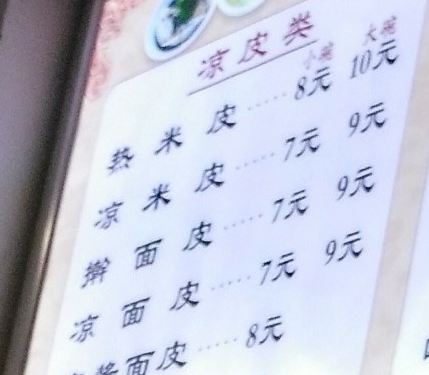 凉皮类
小碗 大碗
热米皮 ····· 8元 10元
凉米皮 ····· 7元 9元
擀面皮 ····· 7元 9元
凉面皮 ····· 7元 9元
酱面皮 ····· 8元